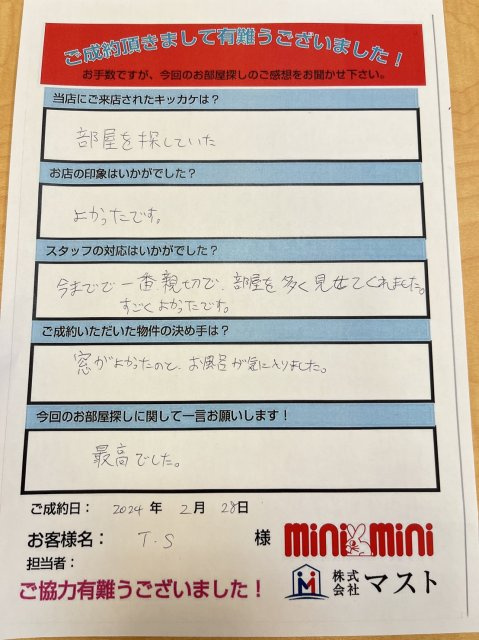 ご成約頂きまして有難うございました!
お手数ですが、今回のお部屋探しのご感想をお聞かせ下さい。
当店にご来店されたキッカケは?
部屋を探していた
お店の印象はいかがでした?
よかったです。
スタッフの対応はいかがでした?
今までで一番親切で、部屋を多く見せてくれました。
すごくよかったです。
ご成約いただいた物件の決め手は?
窓がよかったのと、お風呂が気に入りました。
今回のお部屋探しに関して一言お願いします!
最高でした。
ご成約日: 2024 年 2月 28日
お客様名: T.S 様
担当者:
ご協力有難うございました!
mini mini
株式会社 マスト